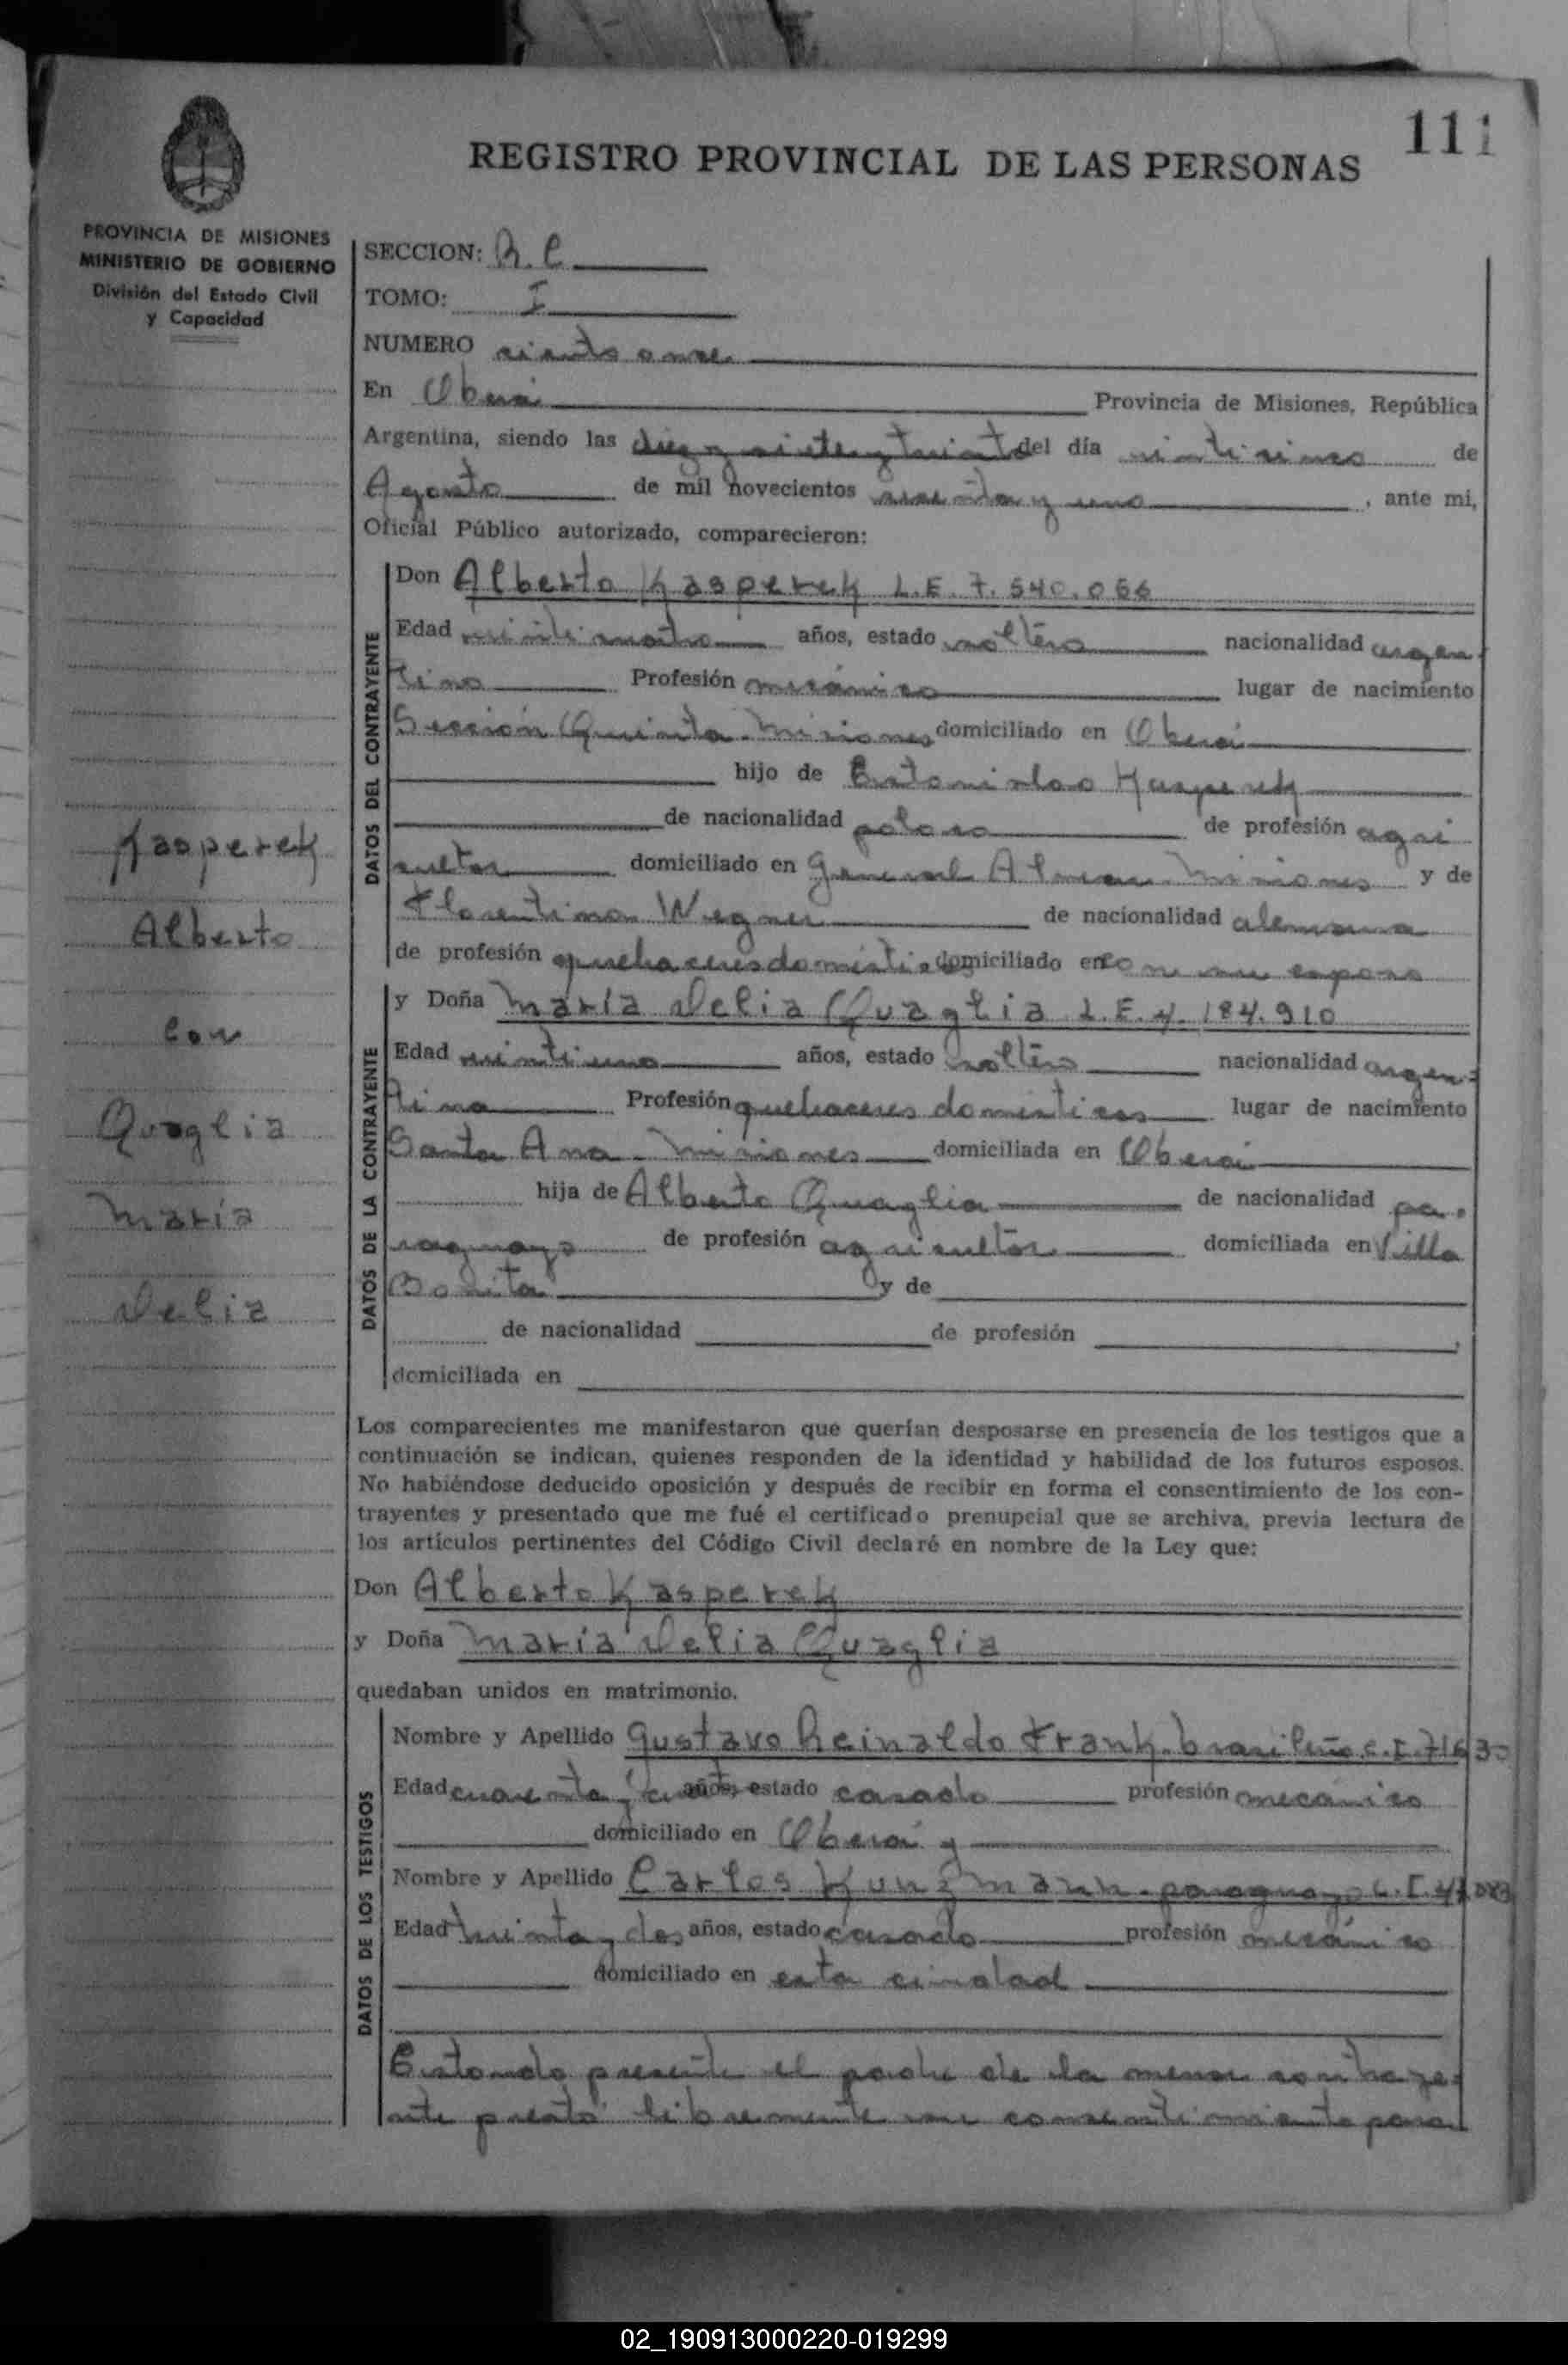 111
REGISTRO PROVINCIAL DE LAS PERSONAS
PROVINCIA DE MISIONES
MINISTERIO DE GOBIERNO
División del Estado Civil
y Capacidad
SECCION: R. C
TOMO: I
NUMERO ciento once
En Oberá Provincia de Misiones, República
Argentina, siendo las diez y siete y treinta del día veinticinco de
Agosto de mil novecientos sesenta y uno, ante mi,
Oficial Público autorizado, comparecieron:
DATOS DEL CONTRAYENTE
Don Alberto Kasperek L.E. 7.540.066
Edad veinticuatro años, estado soltero nacionalidad argen-
tino Profesión mecánico lugar de nacimiento
Sección Quinta-Misiones domiciliado en Oberá
hijo de Estanislao Kasperek
de nacionalidad polaco de profesión agri
cultor domiciliado en General Alvear-Misiones y de
Florentina Wegner de nacionalidad alemana
de profesión quehaceres domésticos domiciliado en con su esposo
DATOS DE LA CONTRAYENTE
y Doña María Delia Quaglia L.E. 4.184.910
Edad veintiuno años, estado soltera nacionalidad argen-
tina Profesión quehaceres domésticos lugar de nacimiento
Santa Ana-Misiones domiciliada en Oberá
hija de Alberto Quaglia de nacionalidad pa-
raguayo de profesión agricultor domiciliada en Villa
Bonita y de
de nacionalidad de profesión
domiciliada en
Kasperek
Alberto
con
Quaglia
María
Delia
Los comparecientes me manifestaron que querían desposarse en presencia de los testigos que a
continuación se indican, quienes responden de la identidad y habilidad de los futuros esposos.
No habiéndose deducido oposición y después de recibir en forma el consentimiento de los con-
trayentes y presentado que me fué el certificado prenupcial que se archiva, previa lectura de
los artículos pertinentes del Código Civil declaré en nombre de la Ley que:
Don Alberto Kasperek
y Doña María Delia Quaglia
quedaban unidos en matrimonio.
DATOS DE LOS TESTIGOS
Nombre y Apellido Gustavo Reinaldo Frank-brasileño C.I. 71630
Edad cuarenta y años, estado casado profesión mecánico
domiciliado en Oberá y
Nombre y Apellido Carlos Kunzmann-paraguayo C.I.
Edad treinta y dos años, estado casado profesión mecánico
domiciliado en esta ciudad
Estando presente el padre de la menor contraye-
nte prestó libremente su consentimiento para
02_190913000220-019299